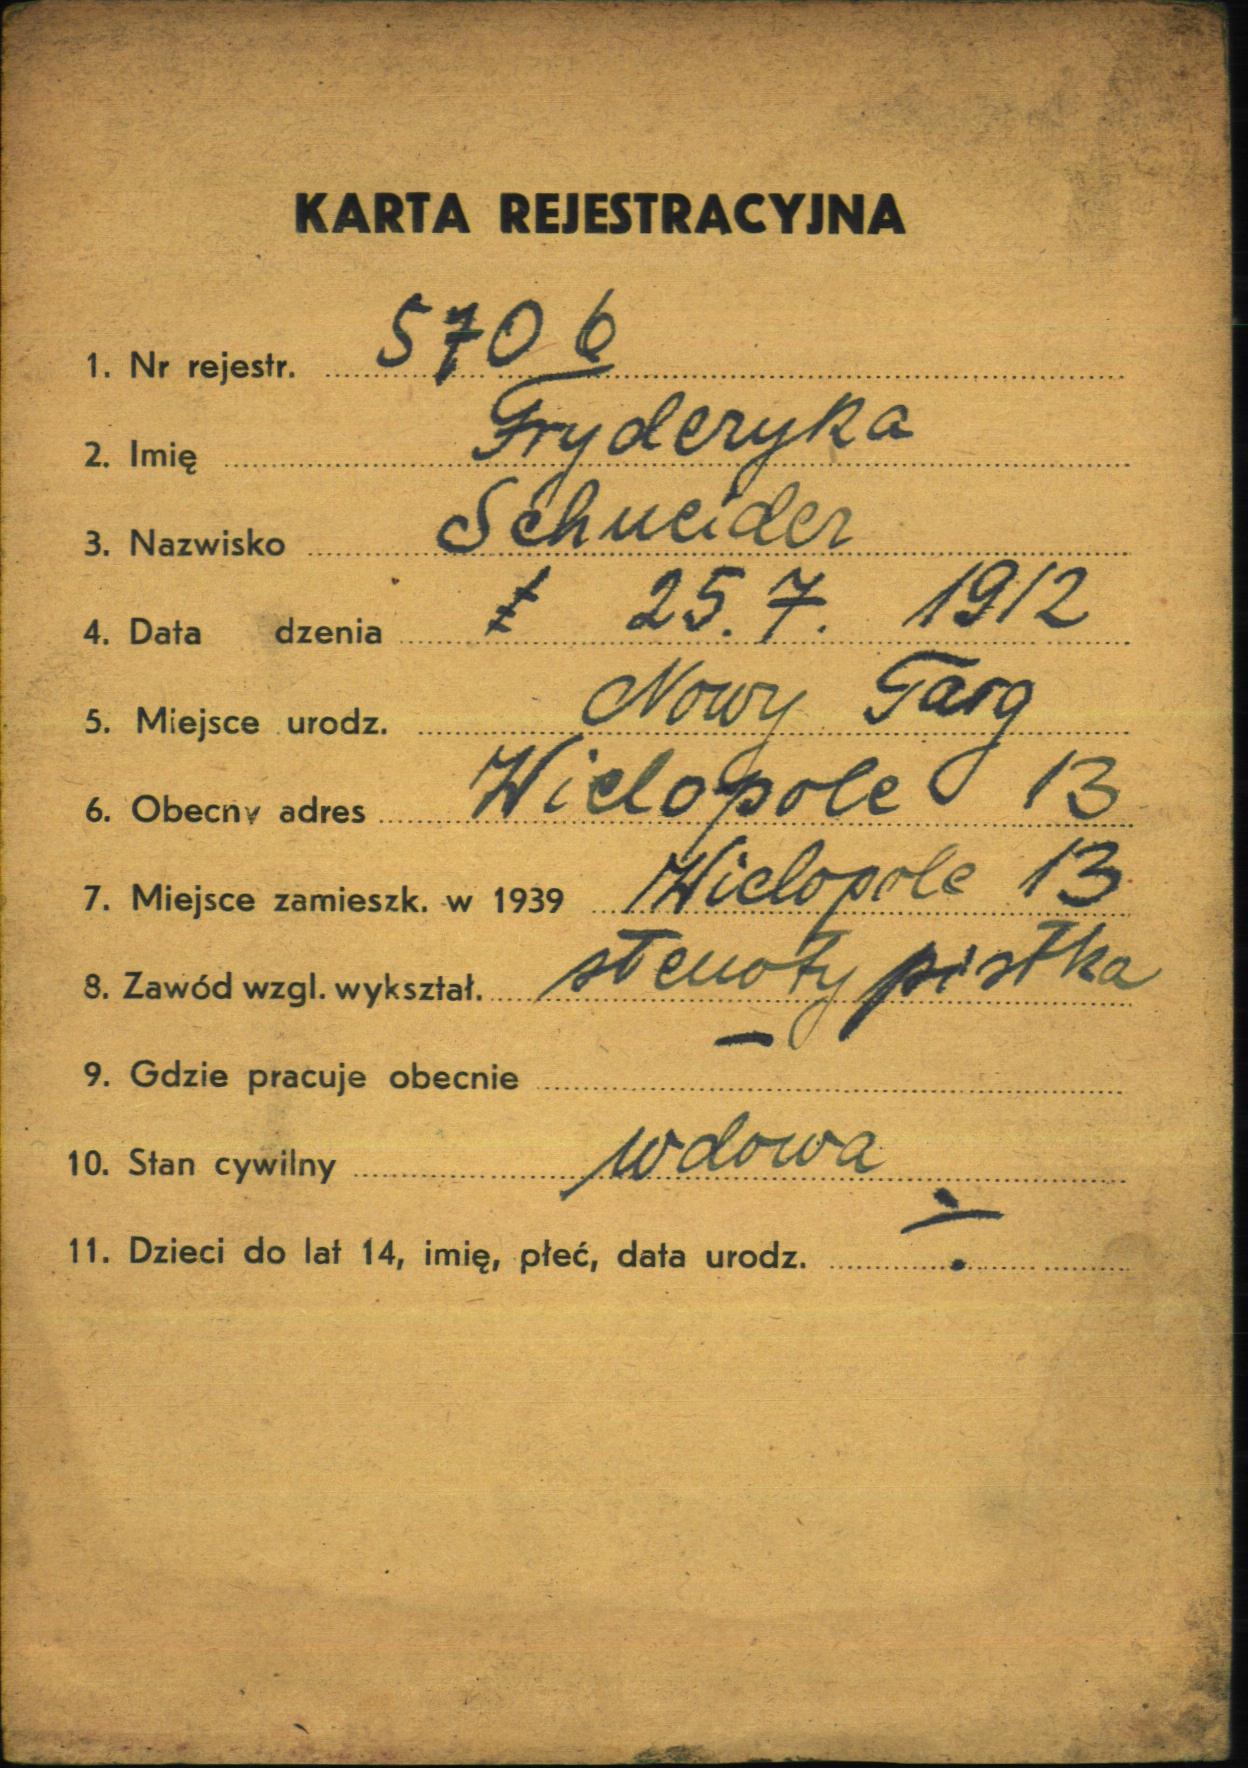 KARTA REJESTRACYJNA
1. Nr rejestr. 5706
2. Imię Fryderyka
3. Nazwisko Schneider
4. Data dzenia 25.7. 1912
5. Miejsce urodz. Nowy Targ
6. Obecny adres Wielopole 13
7. Miejsce zamieszk. w 1939 Wielopole 13
8. Zawód wzgl. wykształ. stenotypistka
9. Gdzie pracuje obecnie —
10. Stan cywilny wdowa
11. Dzieci do lat 14, imię, płeć, data urodz. ÷